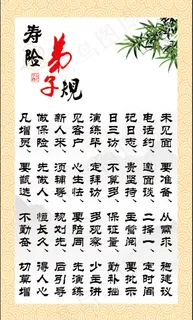 寿险
弟子规
未见面、要准备 从需求、提建议
电话约、邀面谈 二择一、定时间
记日志、贵坚持 主管阅、要批示
日三访、不算多 保证量、勤补抽
见客户、定拜访 多观察、少主讲
演练毕、心生怯 要陪同、先演练
新人来、须辅导 规划先、后引导
做保险、先做人 恒长久、得人心
凡增员、要甄选 不勤奋、切莫增